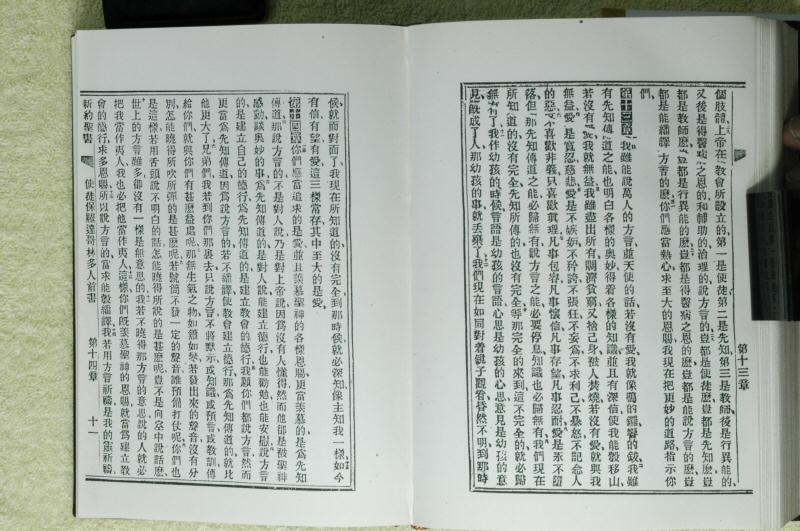 個肢體上帝在教會所設立的第一是使徒第二是先知第三是教師後是行異能的
又後是得醫病之恩的和輔助的治理的說方言的豈都是使徒麽豈都是先知麽豈
都是教師麽豈都是行異能的麽豈都是得醫病之恩的麽豈都是能說方言的麽豈
都是能繙譯方言的麽你們應當熱心求至大的恩賜我現在把更妙的道路指示你
們
第十三章我雖能說萬人的方言並天使的話若沒有愛我就像鳴的鑼響的鈸我雖
有先知傳道之能也明白各樣的奧妙得着各樣的知識並且有深信使我能彀移山
若沒有愛我就無益我雖盡出所有賙濟貧窮又捨己身被人焚燒若沒有愛就與我
無益愛是寬忍慈悲愛是不嫉妬不矜誇不張狂不妄為不求利己不暴怒不記念人
的惡不喜歡非義只喜歡眞理凡事包容凡事懷信凡事存望凡事忍耐愛是永不墮
落但那先知傳道之能必歸無有說方言之能必要停息知識也必歸無有我們現在
所知道的沒有完全先知所傳的也沒有完全等那完全的來到這不完全的就必歸
無有了我作幼孩的時候言語是幼孩的言語心思是幼孩的心思意見是幼孩的意
見旣成了人那幼孩的事就丢棄了我們現在如同對着鏡子觀看昏然不明到那時
第十三章
候就面對面了我現在所知道的沒有完全到那時侯就必深知像主知我一樣如今
有信有望有愛這三樣常存其中至大的是愛
第十四章你們應當追求的是愛並且羨慕聖神的各樣恩賜更當羨慕的是為先知
傳道那說方言的不是對人說乃是對上帝說因為沒有人懂得然而他卻是被聖神
感動談奧妙的事為先知傳道的是對人說能建立德行能勸勉也能安慰說方言
的是建立自己的德行為先知傳道的是建立教會的德行我願你們都說方言然而
更當為先知傳道因為說方言的若不繙譯使教會建立德行那為先知傳道的就比
他更大了兄弟們我若到你們那裏去只說方言不將默示或知識或預言或教訓傳
給你們就與你們有甚麽益處呢那無生氣之物如簫如琴若發出來的聲音沒有分
別怎能曉得所吹所彈的是甚麽呢若號筒不發一定的聲音誰預備打仗呢你們也
是這樣若用舌頭說不明白的話怎能曉得所說的是甚麽呢豈不是向空中說話麽
世上的方言雖多卻沒有一樣是無意思的我若不曉得那方言的意思說的人就必
把我當作夷人我也必把他當作夷人這樣你們旣羨慕聖神的恩賜就當為建立教
會的德行求多恩賜所以說方言的當求能彀繙譯我若用方言祈禱是我的靈祈禱
新約聖書
使徒保羅達哥林多人前書
第十四章
十一